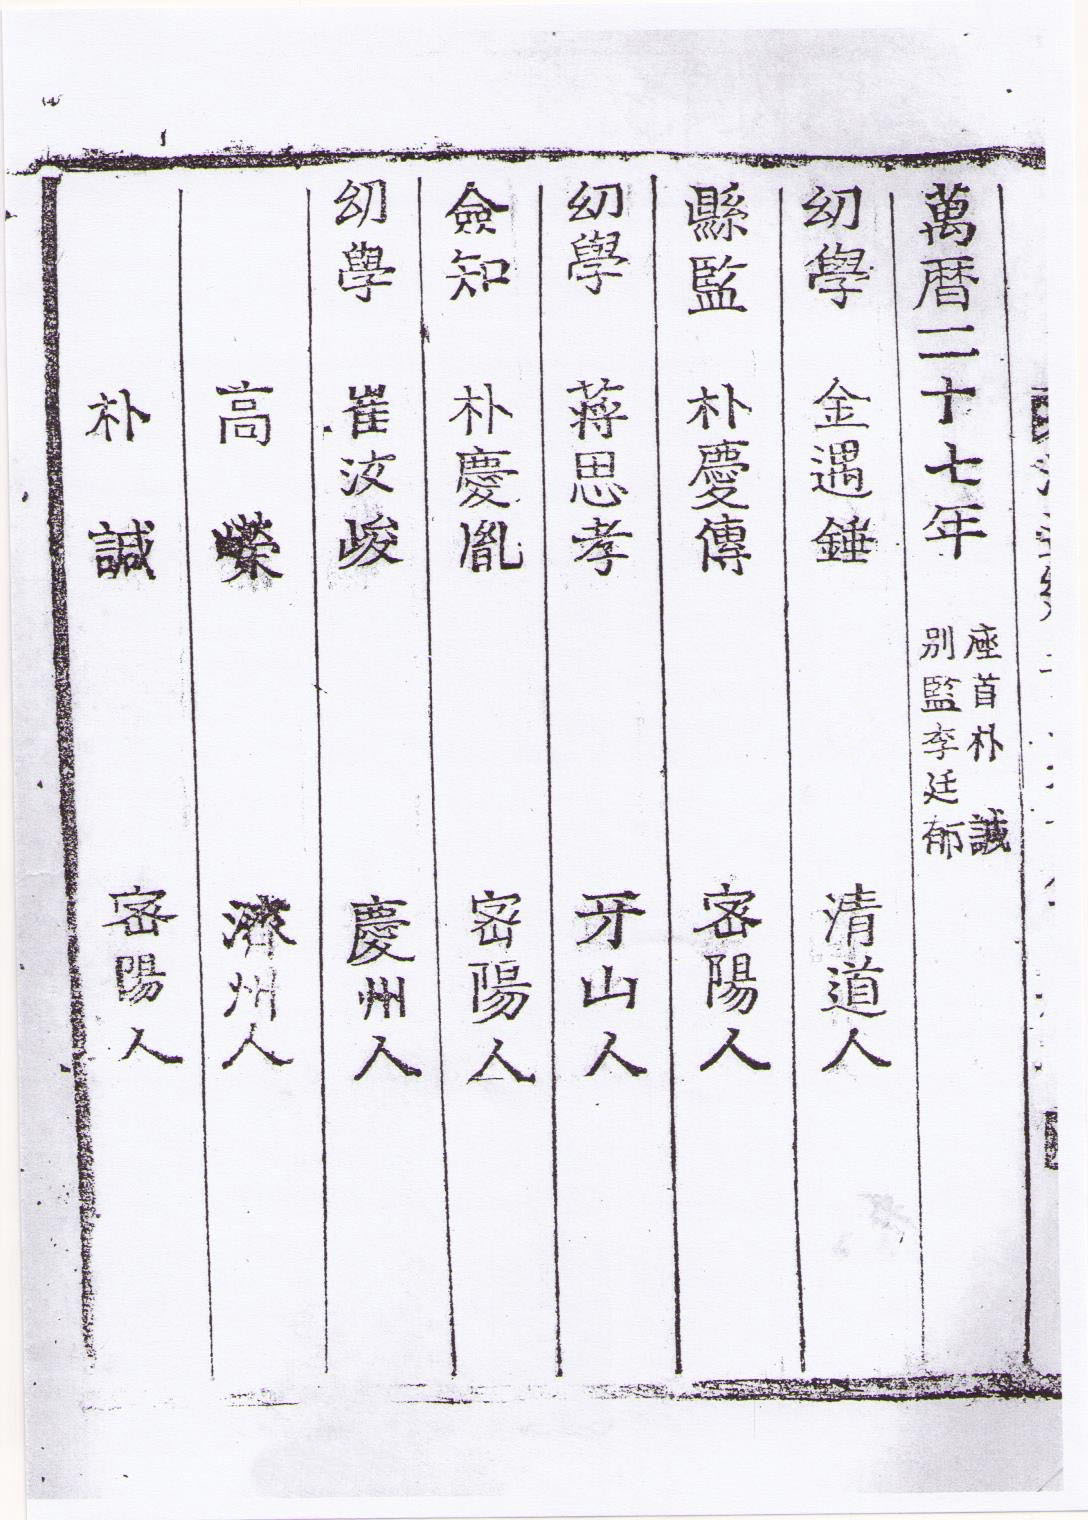 萬曆二十七年 座首朴 諴
別監李廷郁
幼學 金遇錘 清道人
縣監 朴慶傳 密陽人
幼學 蔣思孝 牙山人
僉知 朴慶胤 密陽人
幼學 崔汝峻 慶州人
高 嶸 濟州人
朴 諴 密陽人